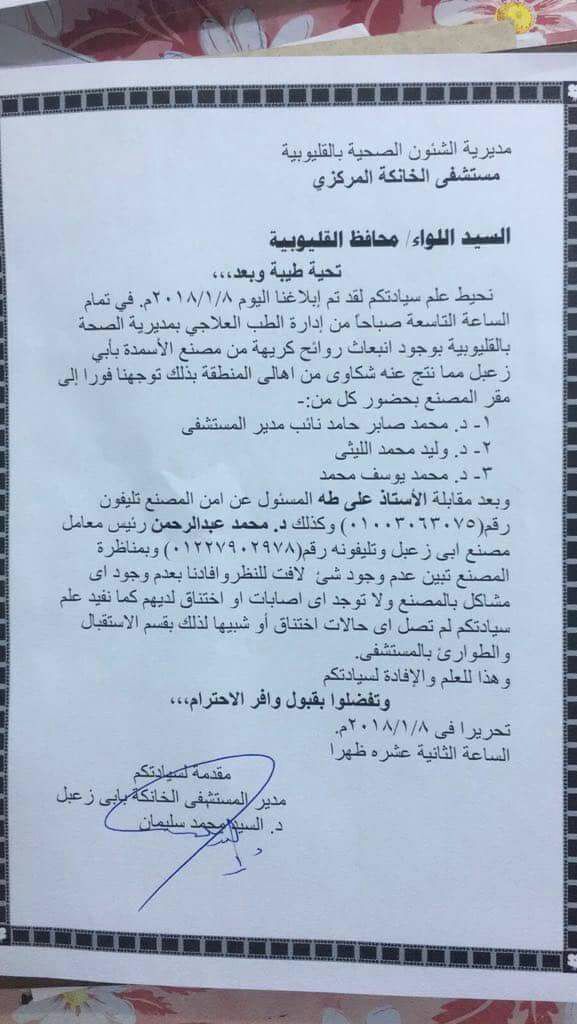 مديرية الشئون الصحية بالقليوبية
مستشفى الخانكة المركزي
السيد اللواء/ محافظ القليوبية
تحية طيبة وبعد،،،
نحيط علم سيادتكم لقد تم إبلاغنا اليوم ٢٠١٨/١/٨م. في تمام
الساعة التاسعة صباحاً من إدارة الطب العلاجي بمديرية الصحة
بالقليوبية بوجود انبعاث روائح كريهة من مصنع الأسمدة بأبي
زعبل مما نتج عنه شكاوى من اهالى المنطقة بذلك توجهنا فورا إلى
مقر المصنع بحضور كل من:-
١- د. محمد صابر حامد نائب مدير المستشفى
٢- د. وليد محمد الليثى
٣- د. محمد يوسف محمد
وبعد مقابلة الأستاذ على طه المسئول عن امن المصنع تليفون
رقم(٠١٠٠٣٠٦٣٠٧٥) وكذلك د. محمد عبدالرحمن رئيس معامل
مصنع ابى زعبل وتليفونه رقم(٠١٢٢٧٩٠٢٩٧٨) وبمناظرة
المصنع تبين عدم وجود شئ لافت للنظر وافادنا بعدم وجود اى
مشاكل بالمصنع ولا توجد اى اصابات او اختناق لديهم كما نفيد علم
سيادتكم لم تصل اى حالات اختناق أو شبيها لذلك بقسم الاستقبال
والطوارئ بالمستشفى.
وهذا للعلم والإفادة لسيادتكم
وتفضلوا بقبول وافر الاحترام،،،
تحريرا فى ٢٠١٨/١/٨م.
الساعة الثانية عشره ظهرا
مقدمة لسيادتكم
مدير المستشفى الخانكة بابى زعبل
د. السيد محمد سليمان